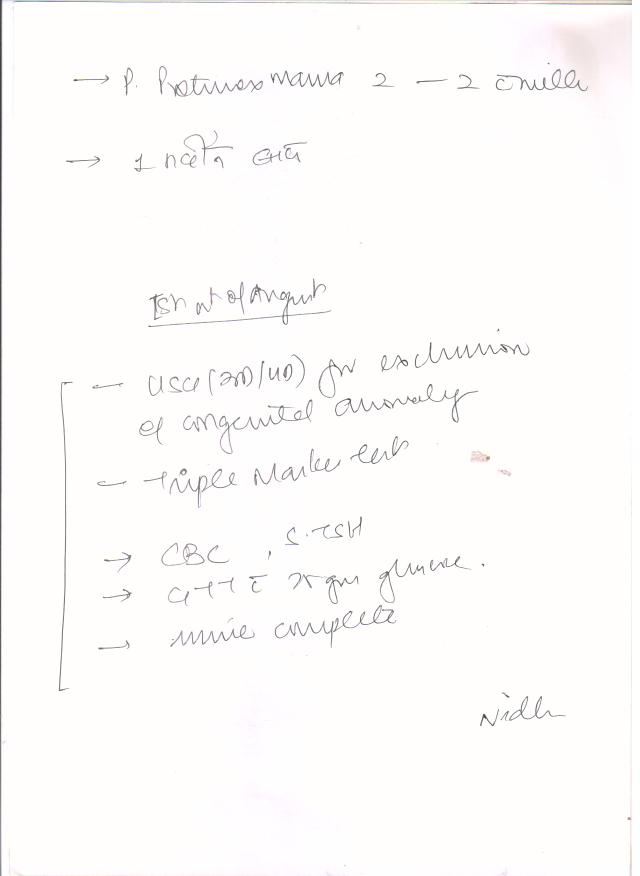 → P. Protinex Mama 2 — 2 c̄ milk
→ 1 महीने बाद
Ist wk of August
– USG (3D/4D) for exclusion
of congenital anomaly
– Triple Marker test
→ CBC, S.TSH
→ GTT c̄ 75 gm glucose.
→ urine complete
Nidhi